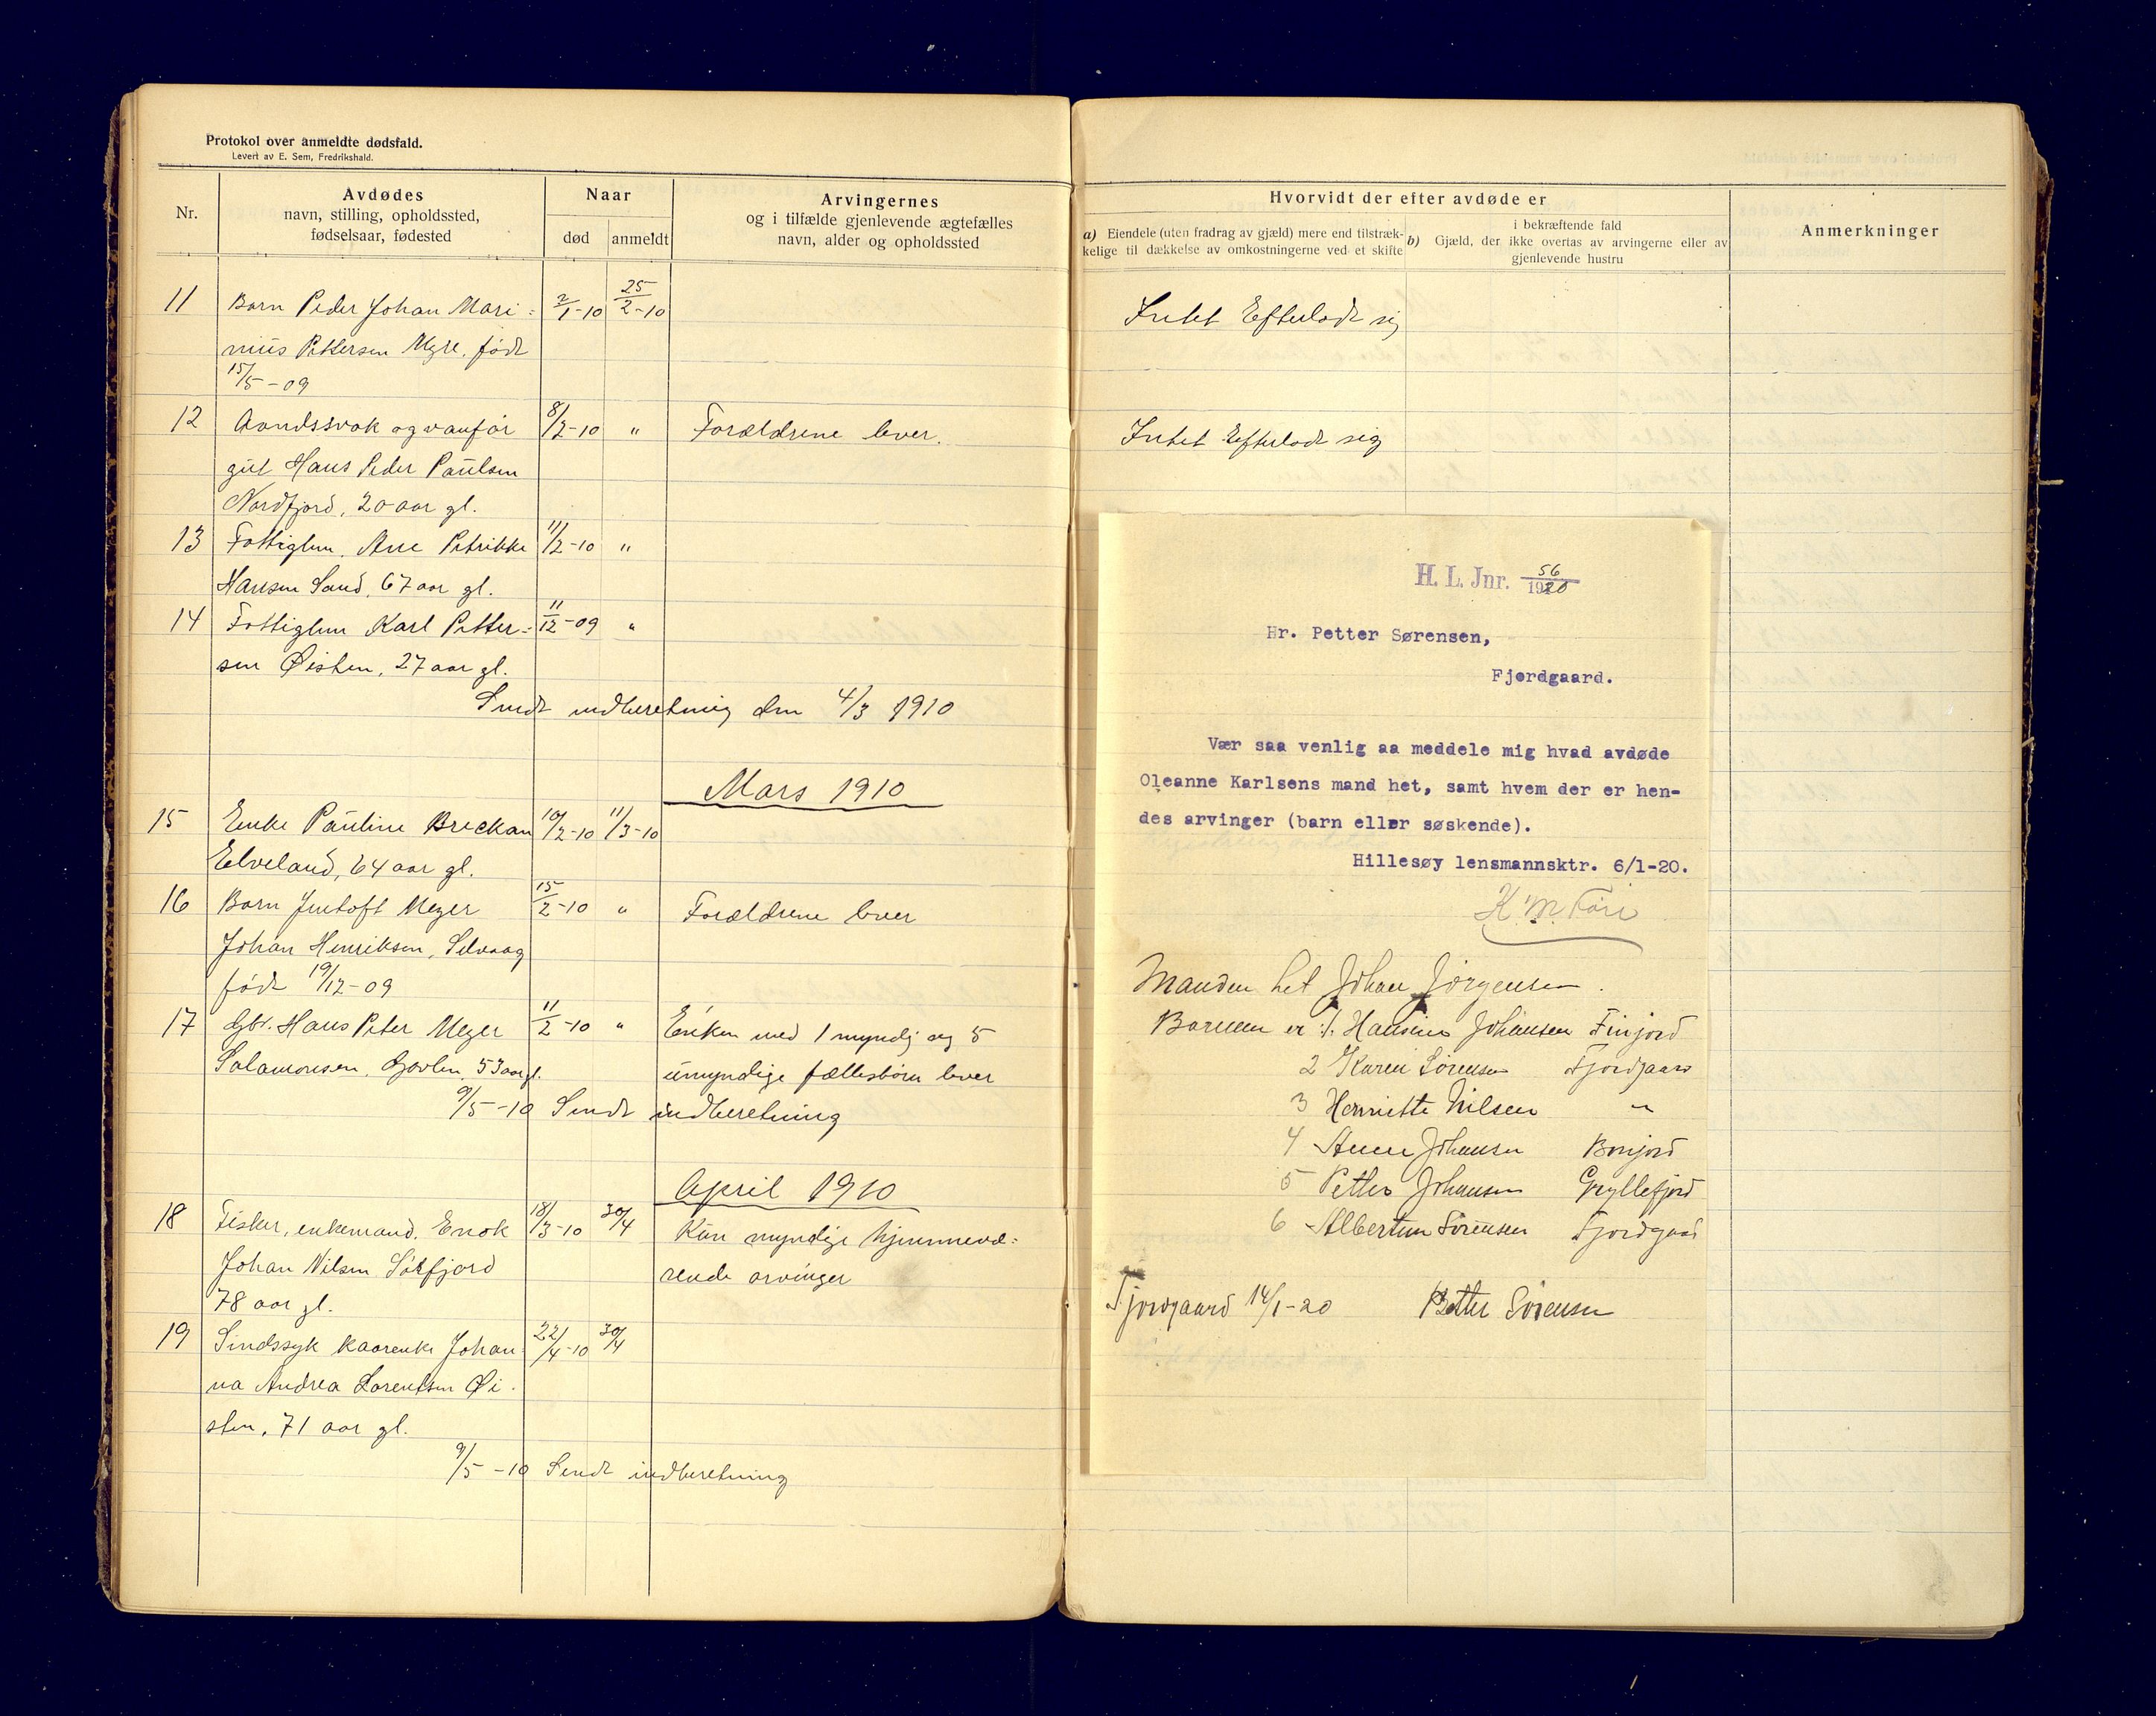 Protokol over anmeldte dødsfald.
Levert av E. Sem, Fredrikshald.
Nr.
Avdødes
navn, stilling, opholdssted,
fødselsaar, fødested
Naar
død
anmeldt
Arvingernes
og i tilfælde gjenlevende ægtefælles
navn, alder og opholdssted
11 Barn Peder Johan Mari- 2/1-10 25/2-10
nius Pettersen Myre, født
15/5-09
12 Aandssvak og vanfør 8/2-10 " Forældrene lever.
gut Hans Peder Paulsen
Nordfjord, 20 aar gl.
13 Fattiglem, Ane Petrikke 11/2-10 "
Hansen Sand, 67 aar gl.
14 Fattiglem Karl Petter- 11/12-09 "
sen Øisten, 27 aar gl.
Sendt indberetning den 4/3 1910
Mars 1910
15 Enke Pauline Breckan 10/2-10 11/3-10
Elveland, 64 aar gl.
16 Barn Jentoft Meyer 15/2-10 " Forældrene lever
Johan Henriksen, Selvaag
født 19/12-09
17 Gbr. Hans Peter Meyer 11/2-10 " Enken med 1 myndig og 5
Salamonsen, 53 aar gl. umyndige fællesbørn lever
9/5-10 Sendt indberetning
April 1910
18 Fisker, enkemand, Enok 18/3-10 30/4 Kun myndige hjemmevæ-
Johan Nilsen Sørfjord rende arvinger
78 aar gl.
19 Sindssyk kaarenke Johan- 22/4-10 30/4
na Andrea Lorentsen Øi-
sten, 71 aar gl.
9/5-10 Sendt indberetning
Hvorvidt der efter avdøde er
a) Eiendele (uten fradrag av gjæld) mere end tilstræk-
kelige til dækkelse av omkostningerne ved et skifte
b) i bekræftende fald
Gjæld, der ikke overtas av arvingerne eller av
gjenlevende hustru
Anmerkninger
Intet Efterlodt sig
Intet Efterlodt sig
H. L. Jnr. 56/1920
Hr. Petter Sørensen,
Fjordgaard.
Vær saa venlig aa meddele mig hvad avdøde
Oleanne Karlsens mand het, samt hvem der er hen-
des arvinger (barn eller søskende).
Hillesøy lensmannsktr. 6/1-20.
Manden het Johan Jørgensen.
Barnen er 1. Hansine Johansen Finjord
2 Karen Sørensen Fjordgaard
3 Henriette Nilsen "
4 Anne Johansen Bonjord
5 Petter Johansen Gryllefjord
6 Albertine Sørensen Fjordgaard
Fjordgaard 14/1-20 Petter Sørensen